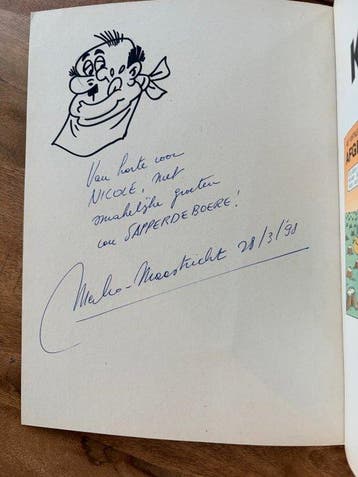 Van harte voor
NICOLE, met
smakelijke groeten
van SAPPERDEBOERE!
Merho - Maastricht 28/3/98
K
AFG